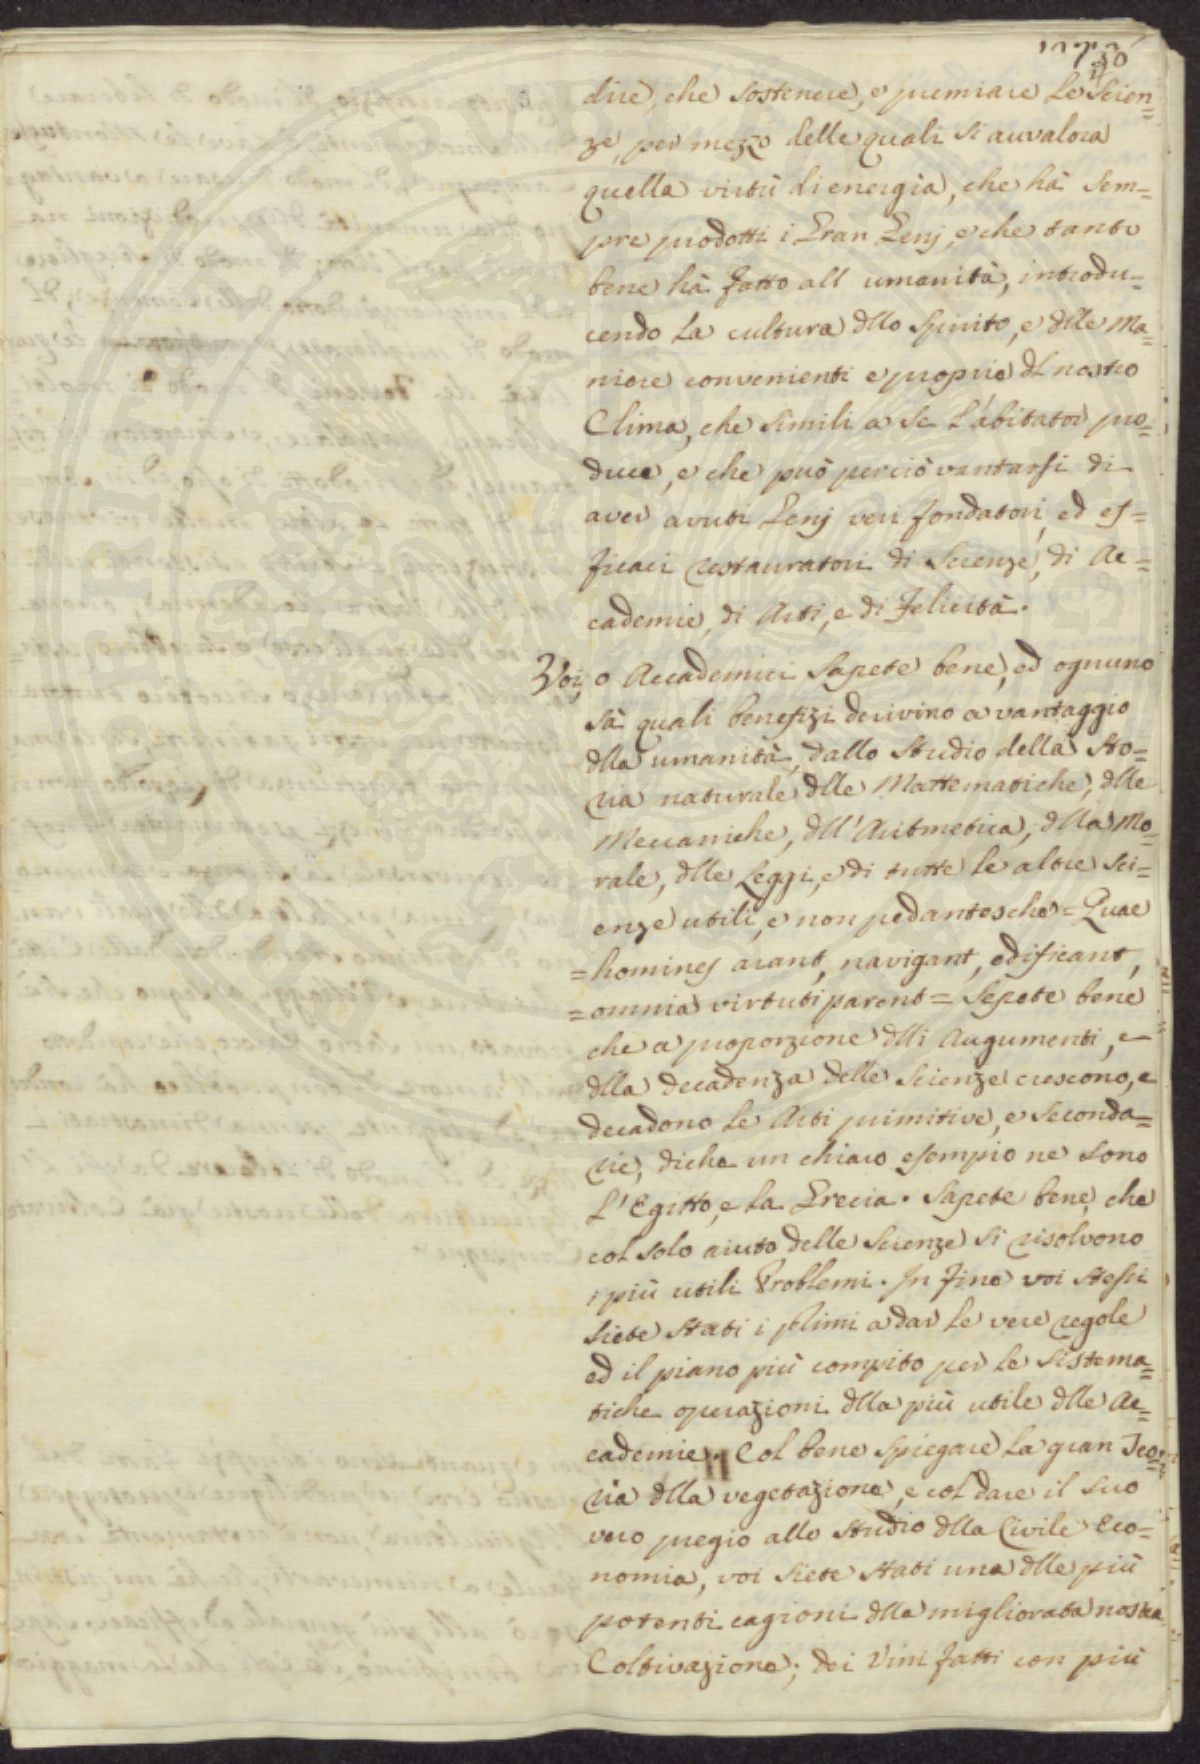 50
dire, che sostenere, e premiare le Scien=
ze, per mezzo delle quali si auvalora
quella virtù di energia, che hà sem=
pre prodotti i Gran Genj, e che tanto
bene hà fatto all umanità, introdu=
cendo la cultura dllo Spirito, e dlle Ma=
niere convenienti e proprie dl nostro
Clima, che simili a se l'abitator pro=
duce, e che può perciò vantarsi di
aver avuti Genj veri fondatori, ed ef=
ficaci restauratori di Scienze, di Ac=
cademie, di Arti, e di Felicità.
Voi, o Accademici sapete bene, ed ognuno
sà quali benefizi derivino a vantaggio
dlla umanità, dallo Studio della Sto=
ria naturale dlle Mattematiche, dlle
Meccaniche, dll'Aritmetica, dlla Mo=
rale, dlle Leggi, e di tutte le altre Sci=
enze utili, e non pedantesche = Quae
= homines arant, navigant, edificant,
= omnia virtuti parent = Sepete bene
che a proporzione dlli Augumenti, e
dlla decadenza delle Scienze crescono, e
decadono le Arti primitive, e Seconda=
rie, diche un chiaro esempio ne sono
l'Egitto, e la Grecia. Sapete bene, che
col solo aiuto delle Scienze si risolvono
i più utili Problemi. In fine voi stessi
siete stati i plimi a dar le vere regole
ed il piano più compito per le sistema=
tiche operazioni dlla più utile dlle Ac=
cademie. Col bene spiegare la gran Teo=
ria dlla vegetazione, e col dare il suo
vero pregio allo Studio dlla Civile Eco=
nomia, voi siete stati una dlle più
potenti cagioni dlla migliorata nostra
Coltivazione; dei Vini fatti con più